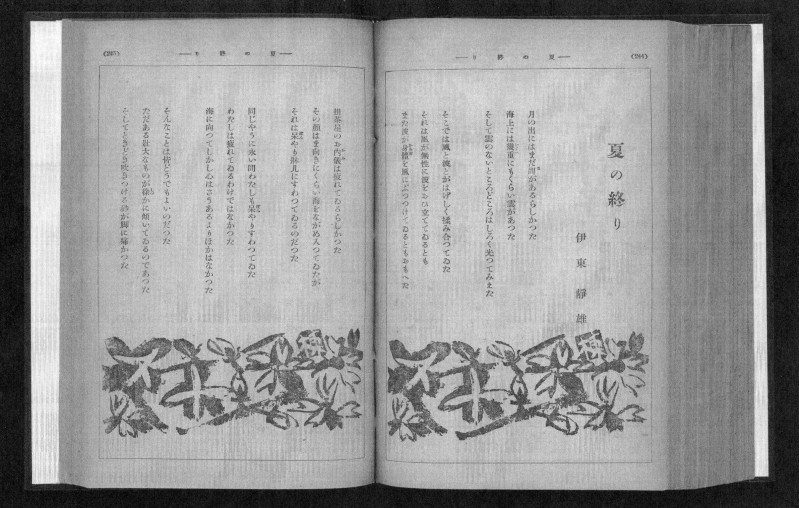 (294)
夏の終り
夏の終り
伊東靜雄
月の出にはまだ間があるらしかつた
海上には幾重にもくらい雲があつた
そして雲のないところどころはしろく光つてみえた
そこでは風と波とがはげしく揉み合つてゐた
それは風が無性に波をおひ立ててゐるとも
また波が身體を風にぶつつけてゐるともおもへた
(295)
夏の終り
掛茶屋のお内儀は疲れてゐるらしかつた
その顏はま向きにくらい海をながめ入つてゐたが
それは呆やり床几にすわつてゐるのだつた
同じやうに永い間わたしも呆やりすわつてゐた
わたしは疲れてゐるわけではなかつた
海に向つてしかし心はさうあるよりほかはなかつた
そんなことは皆どうでもよいのだつた
ただある壯大なものが徐かに傾いてゐるのであつた
そしてときどき吹きつける砂が脚に痛かつた